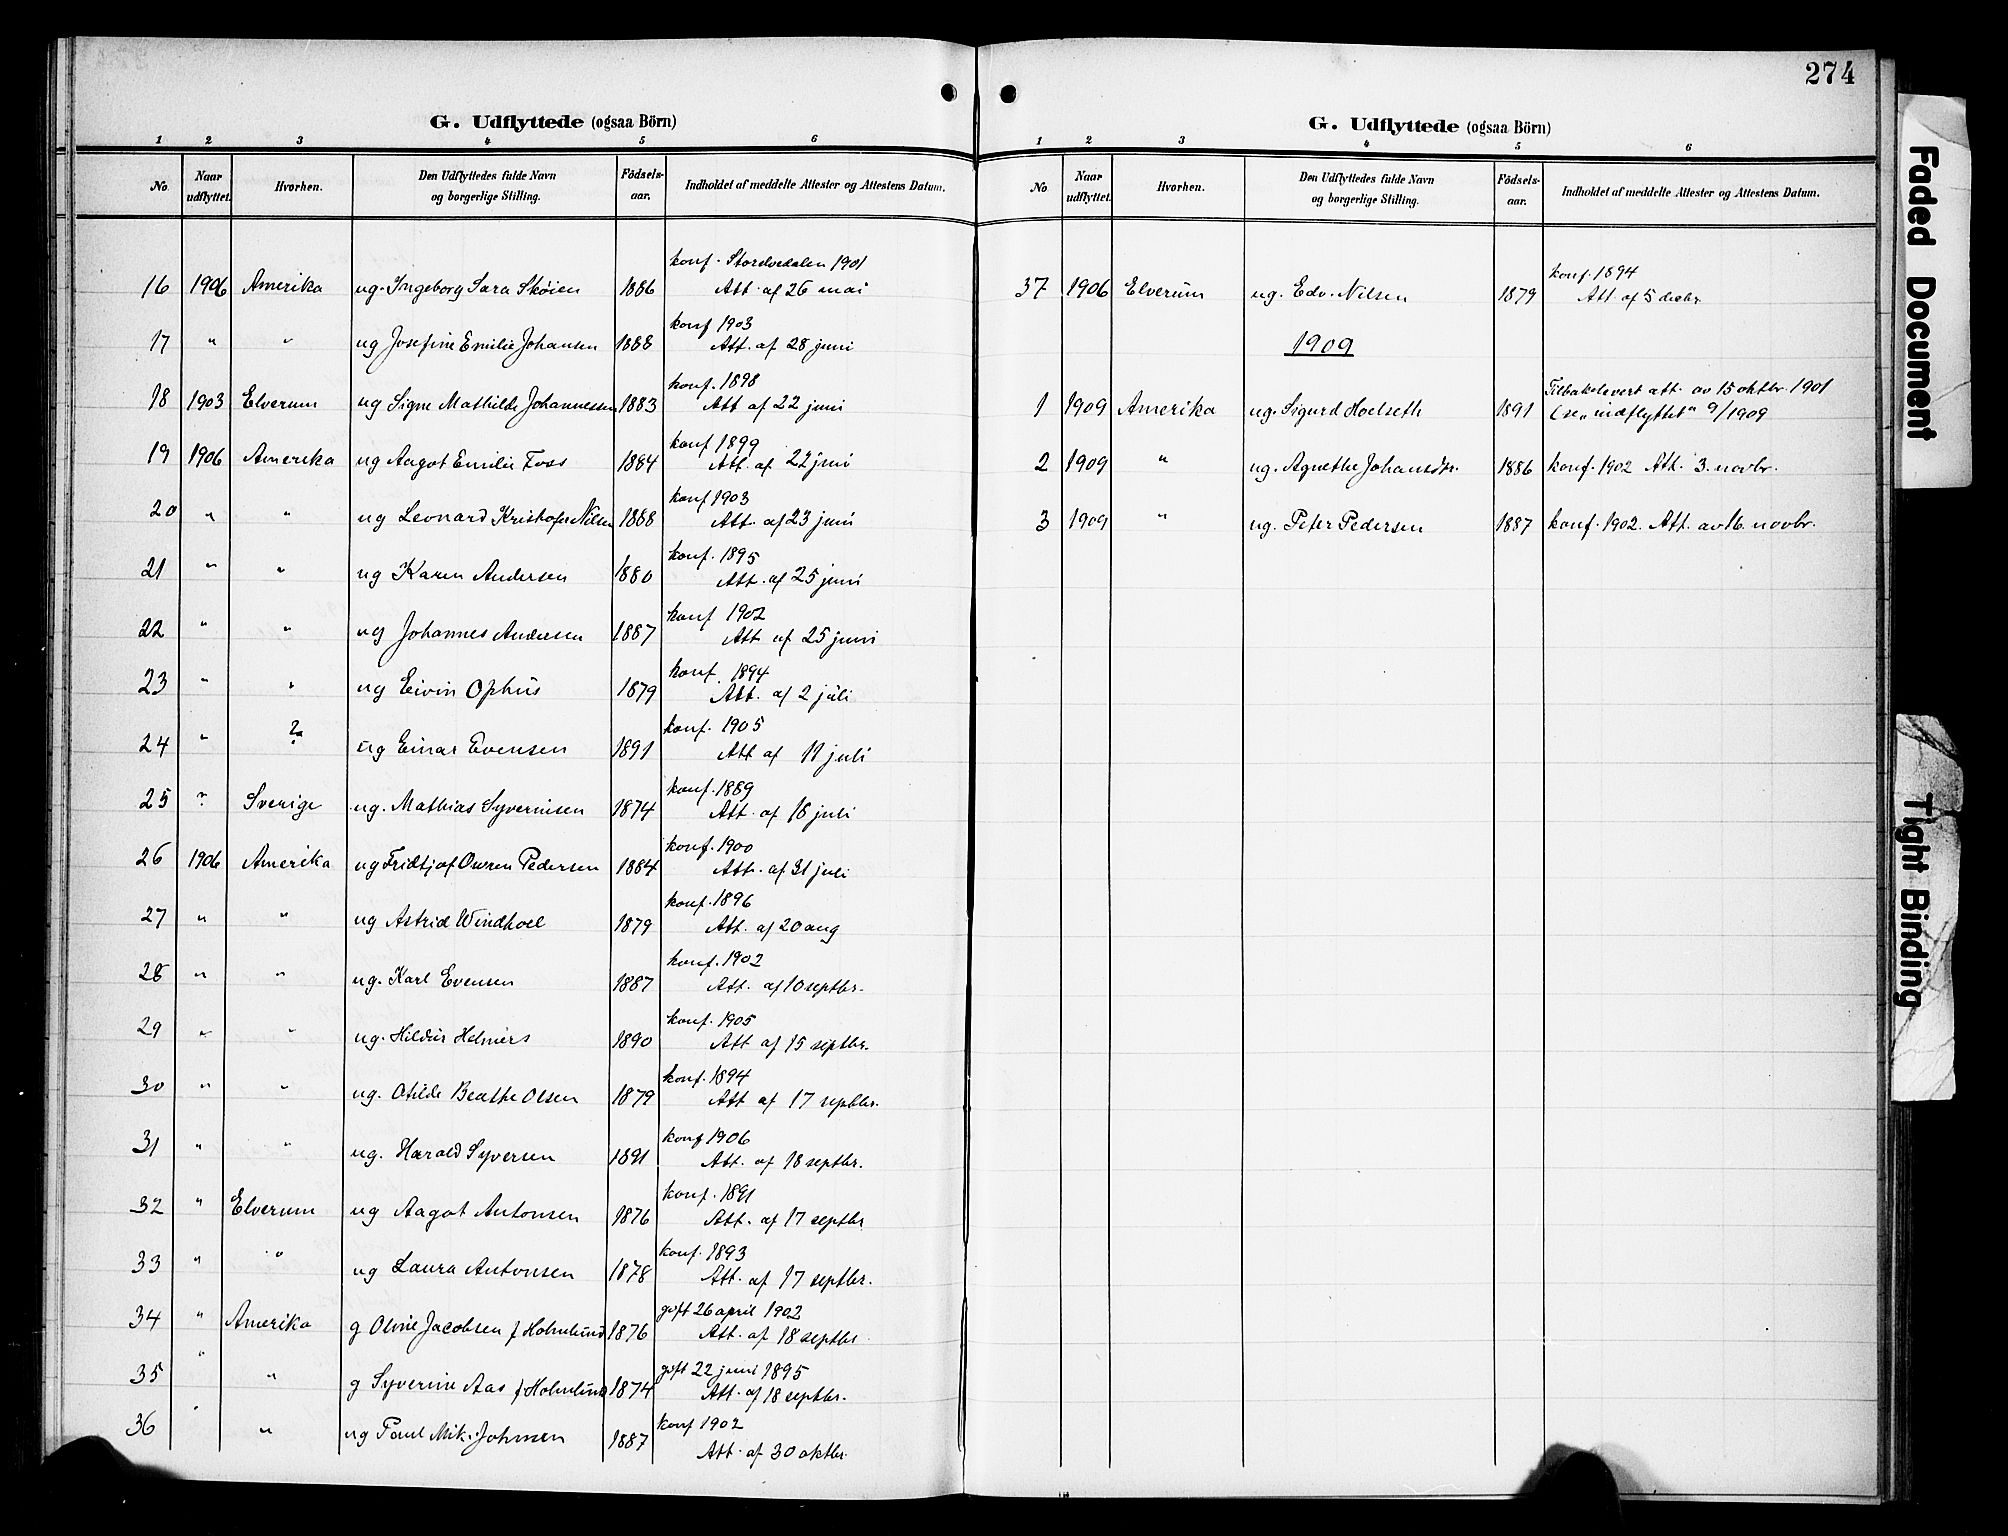 274
G. Udflyttede (ogsaa Börn)
1 2 3 4 5 6
No. Naar udflyttet. Hvorhen. Den Udflyttedes fulde Navn og borgerlige Stilling. Födsels-aar. Indholdet af meddelte Attester og Attestens Datum.
konf. Storelvedalen 1901
16 1906 Amerika ug. Ingeborg Sara Skôien 1886 Att. af 26 mai
konf 1903
17 " " ug Josefine Emilie Johansen 1888 Att. af 28 juni
konf. 1898
18 1903 Elverum ug Signe Mathilde Johannessen 1883 Att af 22 juni
konf 1899
19 1906 Amerika ug Aagot Emilie Foss 1884 Att. af 22 juni
konf 1903
20 " " ug Leonard Kristofer Nilsen 1888 Att. af 23 juni
konf. 1895
21 " " ug Karen Andersen 1880 Att. af 25 juni
konf 1902
22 " " ug Johannes Andersen 1887 Att af 25 juni
konf. 1894
23 " " ug Eivin Ophus 1879 Att. af 2 juli
konf. 1905
24 " ? ug Einar Evensen 1891 Att af 11 juli
konf. 1889
25 ? Sverige ug. Mathias Syvernisen 1874 Att. af 18 juli
konf. 1900
26 1906 Amerika ug Fridtjof Owren Pedersen 1884 Att. af 31 juli
konf. 1896
27 " " ug Astrid Windhoel 1879 Att. af 20 aug
konf. 1902
28 " " ug. Karl Evensen 1887 Att. af 10 septbr.
konf. 1905
29 " " ug. Hildur Helmers 1890 Att af 15 septbr.
konf. 1894
30 " " ug. Otilde Beathe Olsen 1879 Att af 17 septbr.
konf 1906
31 " " ug. Harald Syversen 1891 Att. af 18 septbr.
konf. 1891
32 " Elverum ug Aagot Antonsen 1876 Att. af 17 septbr
konf. 1893
33 " " ug Laura Antonsen 1878 Att. af 17 septbr.
gift 26 april 1902
34 " Amerika g Oline Jacobsen f Holmlund 1876 Att. af 18 septbr.
gift 22 juni 1895
35 " " g Syverine Aas f Holmlund 1874 Att. af 18 septbr.
konf 1902
36 " " ug Paul Mik. Johnsen 1887 Att. af 30 oktbr.
G. Udflyttede (ogsaa Börn)
1 2 3 4 5 6
No. Naar udflyttet. Hvorhen. Den Udflyttedes fulde Navn og borgerlige Stilling. Födsels-aar. Indholdet af meddelte Attester og Attestens Datum.
konf. 1894
37 1906 Elverum ug. Edv. Nilsen 1879 Att. af 5 decbr.
1909
Tilbakelevert att. av 15 oktbr. 1901
1 1909 Amerika ug. Sigurd Hoelseth 1891 (se „indflyttet" 9/1909
2 1909 " ug. Agnethe Johansdtr. 1886 konf. 1902 Att. 3. novbr.
3 1909 " ug. Peter Pedersen 1887 konf. 1902. Att. av 16. novbr.
Faded Document
Tight Binding